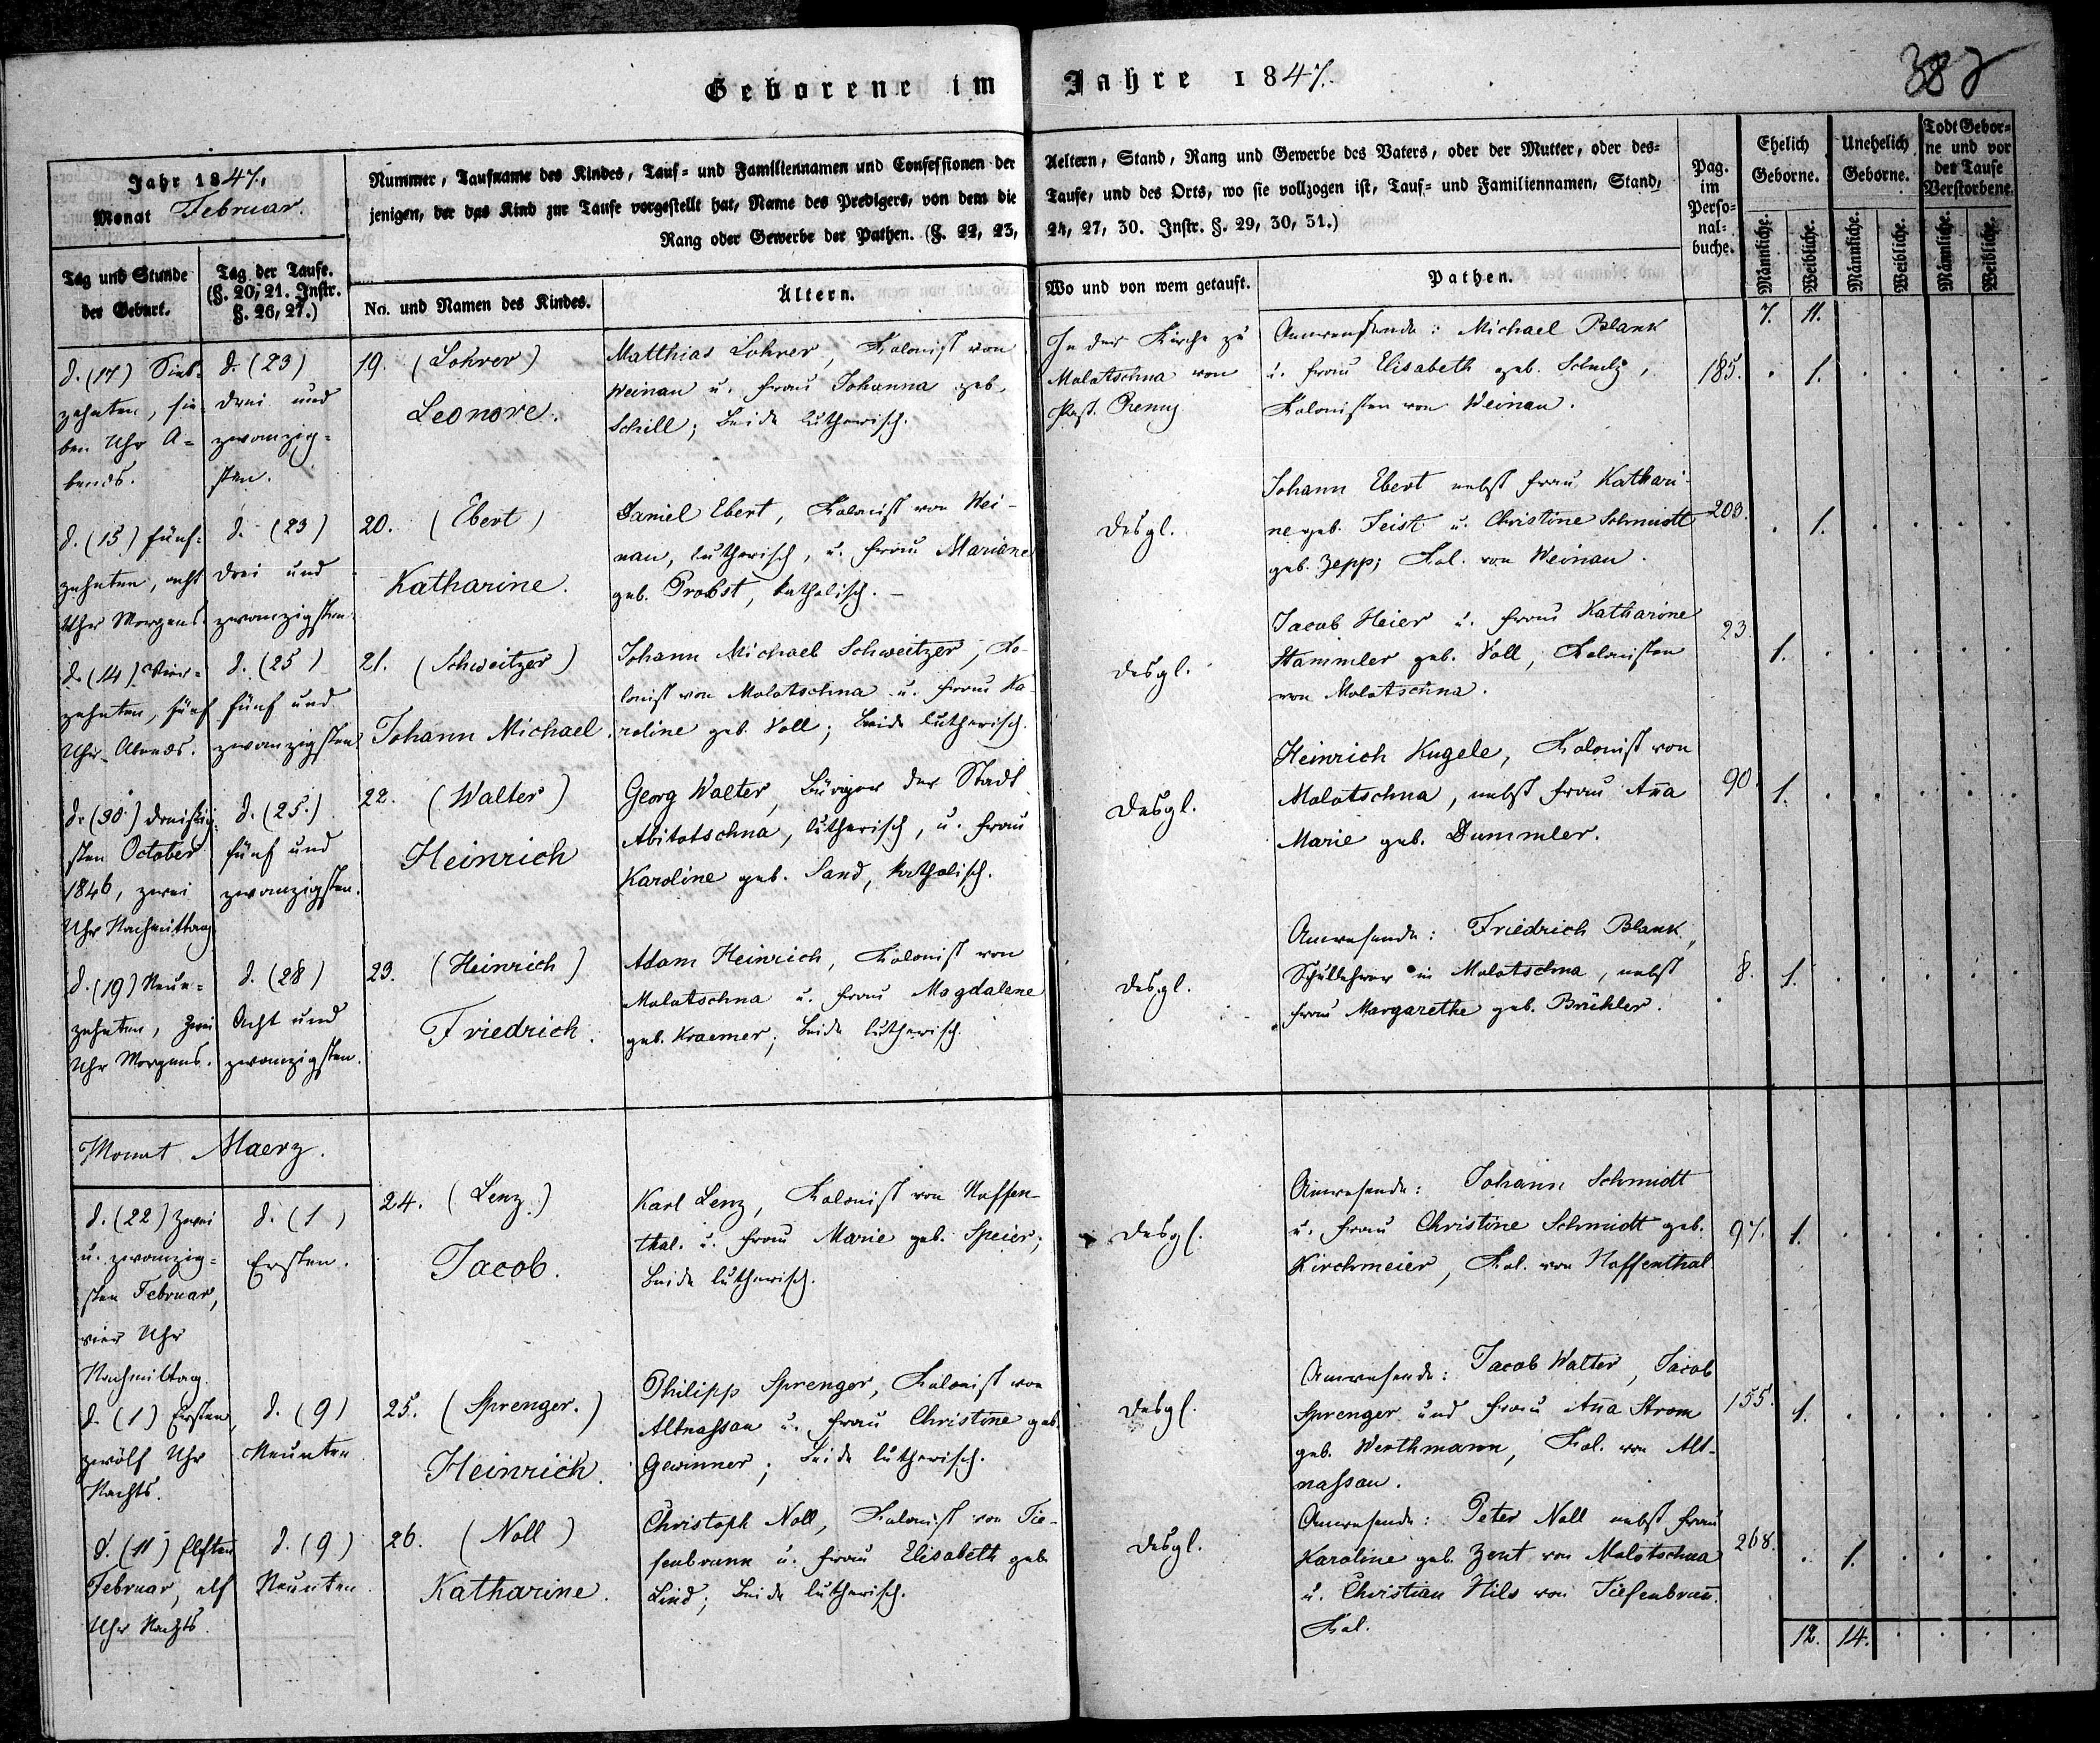 Geborene im Jahre 1847.
387
Jahr 1847.
Monat Februar.
Nummer, Taufname des Kindes, Tauf- und Familiennamen und Confessionen der Aeltern, Stand, Rang und Gewerbe des Vaters, oder der Mutter, oder des-
jenigen, der das Kind zur Taufe vorgestellt hat, Name des Predigers, von dem die Taufe, und des Orts, wo sie vollzogen ist, Tauf- und Familiennamen, Stand,
Rang oder Gewerbe der Pathen. (§. 22, 23, 24, 27, 30. Instr. §. 29, 30, 31.)
Pag.
im
Perso-
nal-
buche.
Ehelich
Geborne.
Unehelich
Geborne.
Todt Gebor-
ne und vor
der Taufe
Verstorbene.
Männliche.
Weibliche.
Männliche.
Weibliche.
Männliche.
Weibliche.
Tag und Stunde
der Geburt.
Tag der Taufe.
(§. 20, 21. Instr.
§. 26, 27.)
No. und Namen des Kindes.
Ältern.
Wo und von wem getauft.
Pathen.
7. 11.
d. (17) Sieb-
zehnten, sie-
ben Uhr A-
bends.
d. (23)
drei und
zwanzig-
sten.
19. (Lohrer)
Leonore.
Matthias Lohrer, Kolonist von
Weinau u. Frau Johanna geb.
Schill; beide lutherisch.
In der Kirche zu
Molotschna von
Past.
Anwesende: Michael Blank
u. Frau Elisabeth geb. Schulz,
Kolonisten von Weinau.
185. . 1. . . . .
d. (15) fünf-
zehnten, acht
Uhr Morgens
d. (23)
drei und
zwanzigsten
20. (Ebert)
Katharine.
Daniel Ebert, Kolonist von Wei-
nau, lutherisch, u. Frau Mariane
geb. Probst, katholisch. –
desgl.
Johann Ebert nebst Frau Kathari-
ne geb. Feist u. Christine Schmidt
geb. Zepp; Kol. von Weinau.
203. . 1. . . . .
d. (14) Vier-
zehnten, fünf
Uhr Abends.
d. (25)
fünf und
zwanzigsten
21. (Schweitzer)
Johann Michael.
Johann Michael Schweitzer, Ko-
lonist von Molotschna u. Frau Ka-
roline geb. Voll; beide lutherisch.
desgl.
Jacob Heier u. Frau Katharine
Stammler geb. Voll, Kolonisten
von Molotschna.
23. 1. . . . . .
d. (30) dreißig-
sten October
1846, zwei
Uhr Nachmittag
d. (25.)
fünf und
zwanzigsten.
22. (Walter)
Heinrich
Georg Walter, Bürger der Stadt
Abitotschna, lutherisch, u. Frau
Karoline geb. Sand, katholisch.
desgl.
Heinrich Kugele, Kolonist von
Molotschna, nebst Frau Ana
Marie geb. Dummler.
90. 1. . . . . .
d. (19) Neun-
zehnten, zwei
Uhr Morgens.
d. (28)
Acht und
zwanzigsten.
23. (Heinrich)
Friedrich.
Adam Heinrich, Kolonist von
Molotschna u. Frau Magdalene
geb. Kraemer; beide lutherisch.
desgl.
Anwesende: Friedrich Blank,
Schullehrer in Molotschna, nebst
Frau Margarethe geb. Brühler.
8. 1. . . . . .
Monat Maerz.
d. (22) zwei
u. zwanzig-
sten Februar,
vier Uhr
Nachmittag.
d. (1)
Ersten.
24. (Lenz.)
Jacob.
Karl Lenz, Kolonist von Hoffen-
thal. u. Frau Marie geb. Speier;
beide lutherisch.
desgl.
Anwesende: Johann Schmidt
u. Frau Christine Schmidt geb.
Kirchmeier, Kol. von Hoffenthal
97. 1. . . . . .
d. (1) Ersten,
zwölf Uhr
Nachts.
d. (9)
Neunten
25. (Sprenger.)
Heinrich.
Philipp Sprenger, Kolonist von
Altnassau u. Frau Christine geb.
Gewinner; beide lutherisch.
desgl.
Anwesende: Jacob Walter, Jacob
Sprenger und Frau Ana Strom
geb. Werthmann, Kol. von Alt-
nassau.
155. 1. . . . . .
d. (11) Elften
Februar, elf
Uhr Nachts.
d. (9)
Neunten.
26. (Noll)
Katharine.
Christoph Noll, Kolonist von Tie-
fenbrunn u. Frau Elisabeth geb.
Lind; beide lutherisch.
desgl.
Anwesende: Peter Noll nebst Frau
Karoline geb. Zent von Molotschna
u. Christian Hils von Tiefenbrun.
Kol.
268. . 1. . . . .
12. 14. . . . .